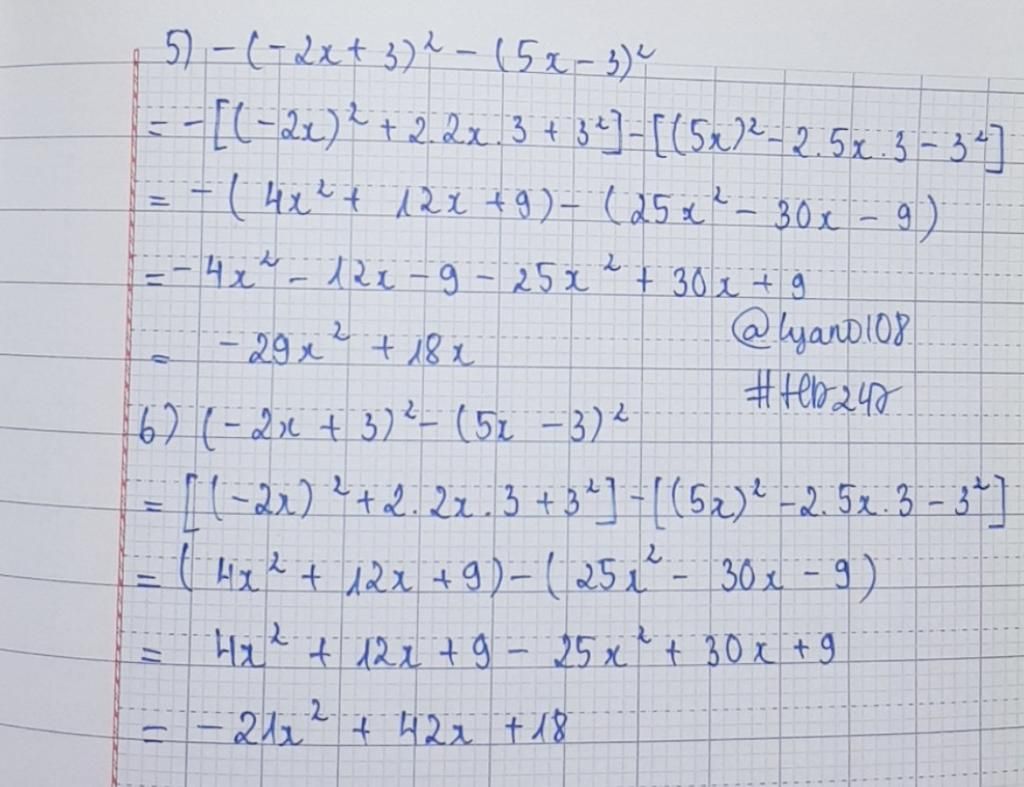 5) -(-2x+3)² - (5x-3)²
= -[(-2x)² + 2.2x.3 + 3²] - [(5x)² - 2.5x.3 - 3²]
= -(4x² + 12x + 9) - (25x² - 30x - 9)
= -4x² - 12x - 9 - 25x² + 30x + 9
= -29x² + 18x
@lyan0108
6) (-2x + 3)² - (5x - 3)²
= [(-2x)² + 2.2x.3 + 3²] - [(5x)² - 2.5x.3 - 3²]
= (4x² + 12x + 9) - (25x² - 30x - 9)
= 4x² + 12x + 9 - 25x² + 30x + 9
= -21x² + 42x + 18